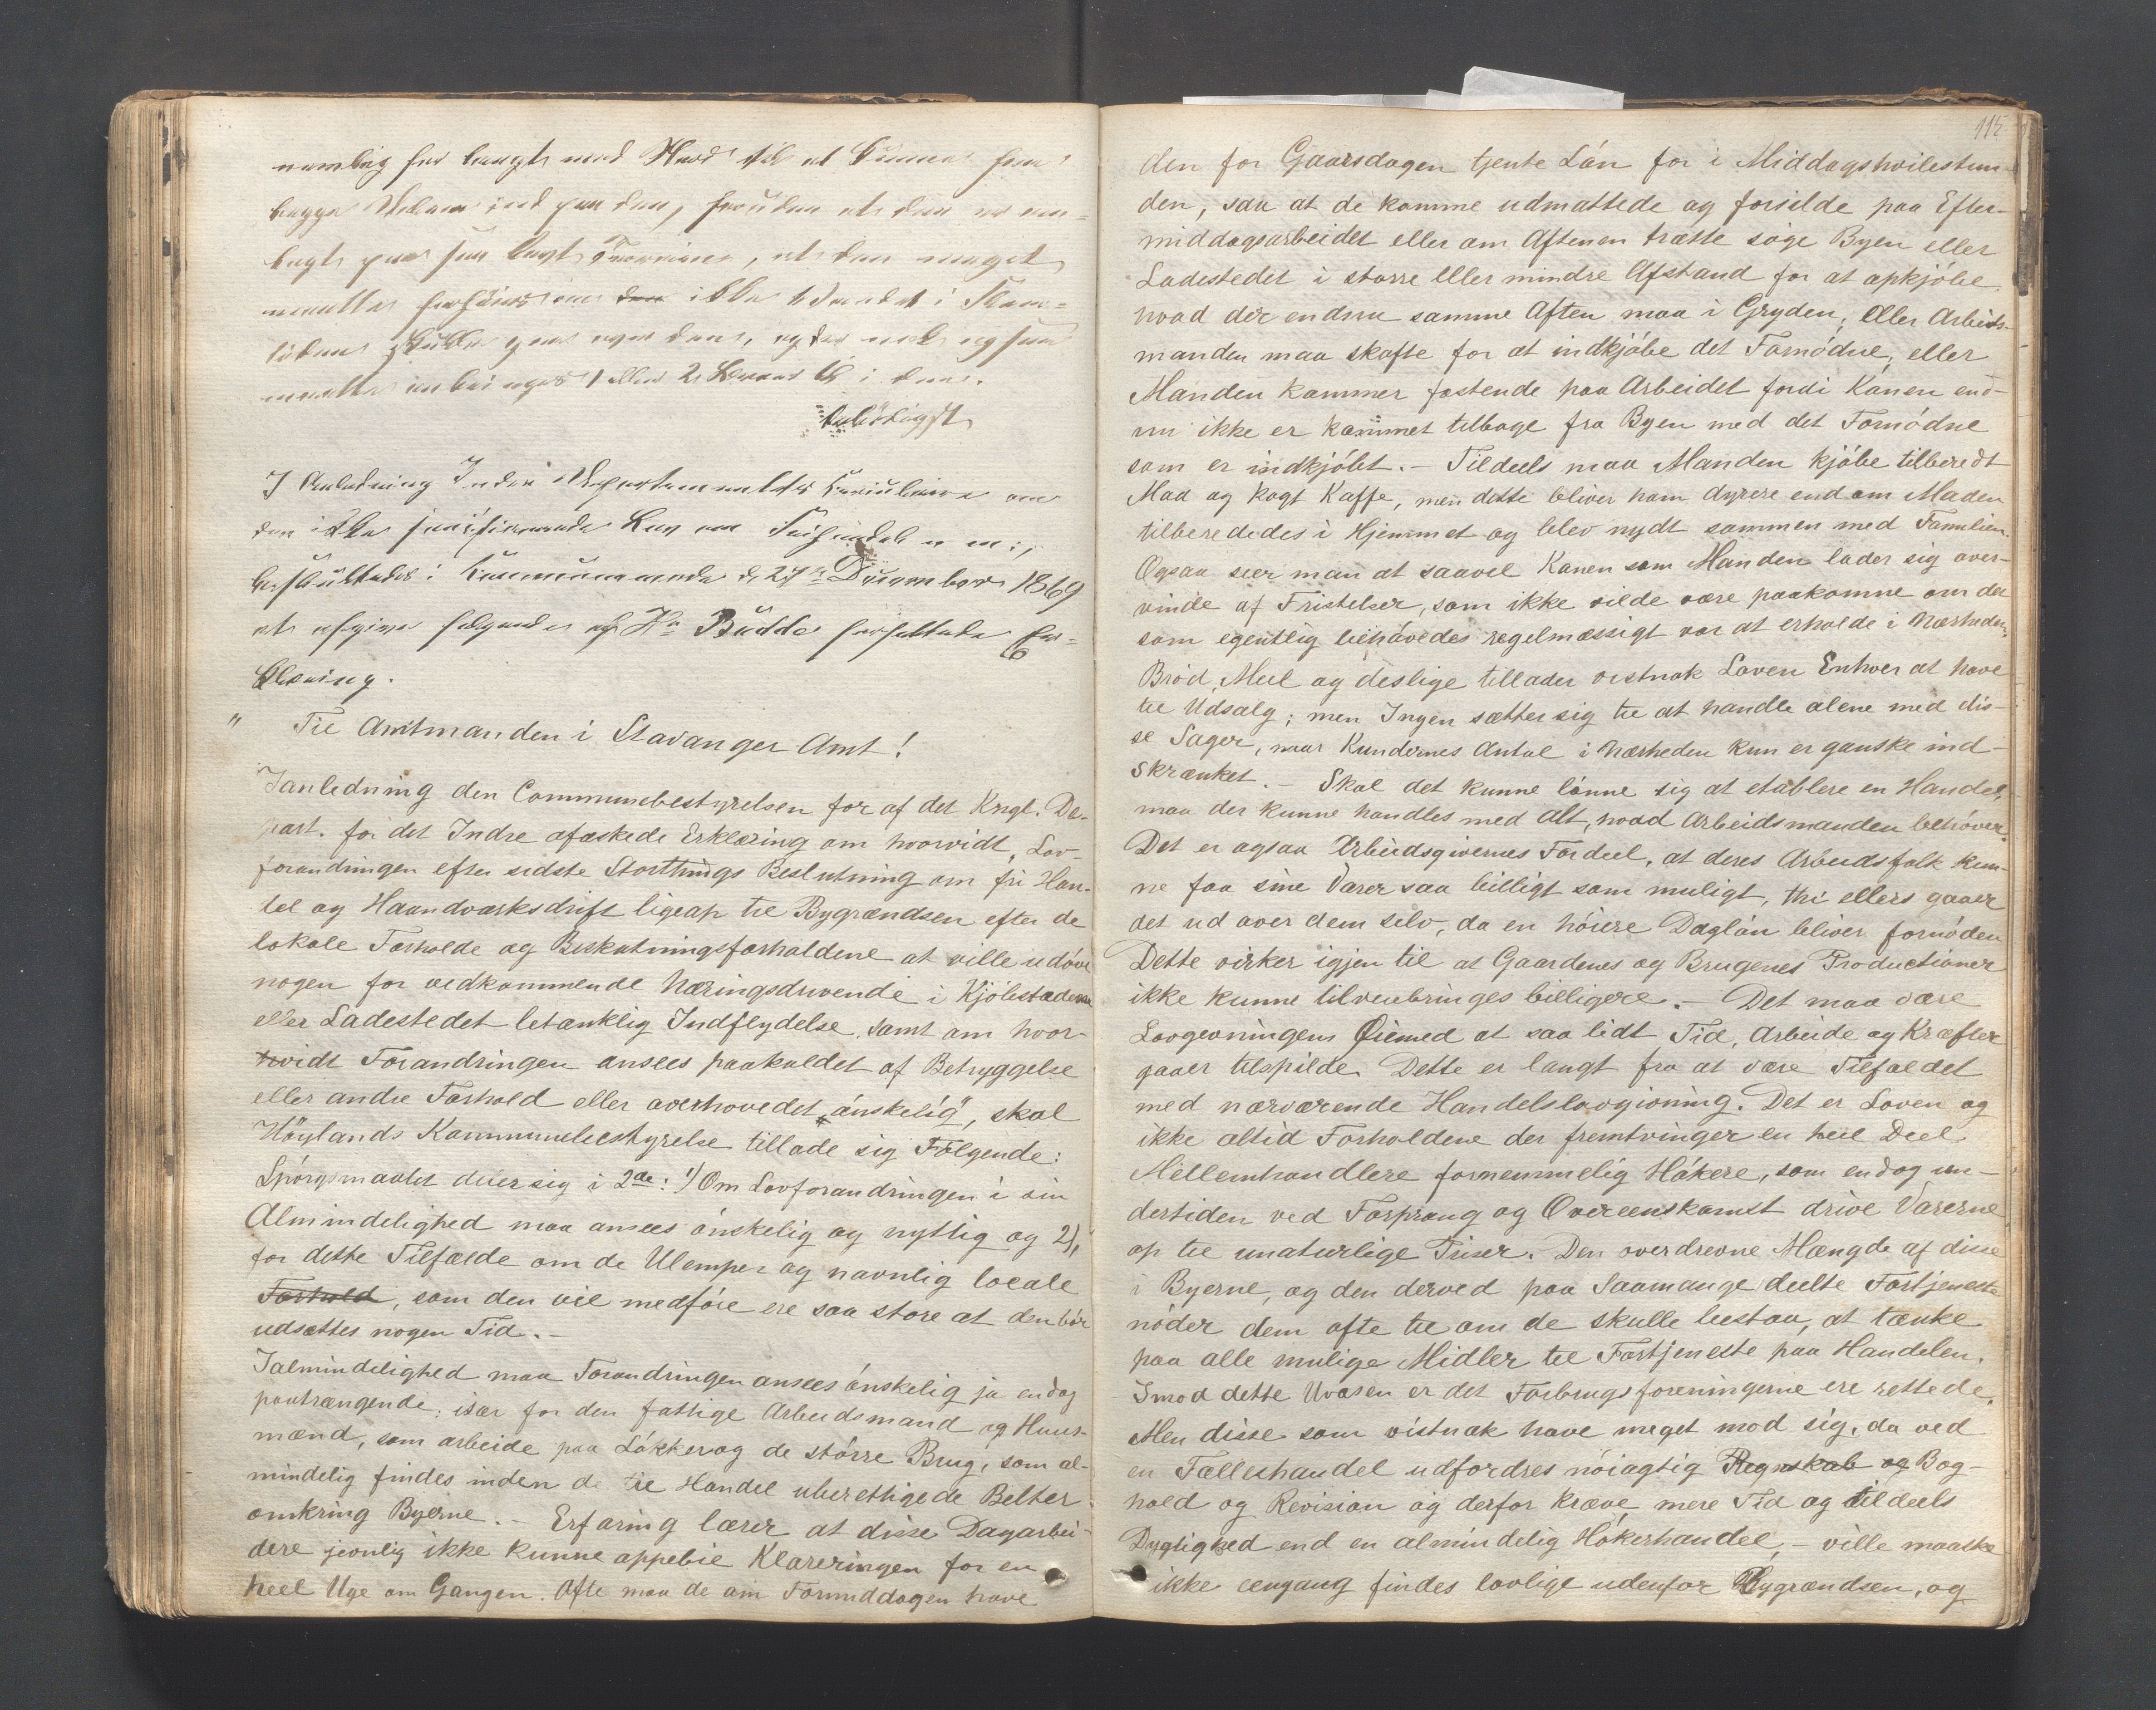 nemlig for langt mod Nord til at kunne faae
begge ind paa den, foruden at den er an-
lagt paa saa lavt Terrain, at den meget
maatte forhøies om den ikke Vandet i Flom-
tiden skulde gaae over den, og der nok ogsaa
maatte anbringes 1 eller 2 i den.
Ærbødigst
I Anledning Indre Departementets Circulaire om
den ikke sanctionerede Lov om Frihandel m. m:,
besluttedes i Kommunemøde d. 27de December 1869
at afgive følgende af Hr Budde forfattede Er-
klæring.
" Til Amtmanden i Stavanger Amt!
Ianledning den Communebestyrelsen for af det Kngl. De-
part. for det Indre afæskede Erklæring om hvorvidt, Lov-
forandringen efter sidste Storthings Beslutning om fri Han-
del og Haandværksdrift ligeop til Bygrændsen efter de
lokale Forholde og Beskatningsforholdene at ville udøve
nogen for vedkommende Næringsdrivende i Kjøbstæderne
eller Ladestedet betænklig Indflydelse, samt om hvor-
hvidt Forandringen ansees paakaldet af Betryggelse
eller andre Forhold eller overhovedet "ønskelig", skal
Høylands Kommunebestyrelse tillade sig Følgende:
Spørgsmaalet deler sig i 2de: 1) Om Lovforandringen i sin
Almindelighed maa ansees ønskelig og nyttig og 2),
for dette Tilfælde om de Ulemper og navnlig locale
Forhold, som den vil medføre ere saa store at den bør
udsættes nogen Tid. -
Ialmindelighed maa Forandringen ansees ønskelig ja endog
paatrængende: især for den fattige Arbeidsmand og Huus-
mænd, som arbeide paa Løkker og de større Brug, som al-
mindelig findes inden de til Handel uberettigede Belter
omkring Byerne. - Erfaring lærer at disse Dagarbei-
dere jevnlig ikke kunne oppebie Klareringen for en
heel Uge om Gangen. Ofte maa de om Formiddagen have
115
den for Gaarsdagen tjente Løn for i Middagshvilestun-
den, saa at de komme udmattede og forsilde paa Efter-
middagsarbeidet eller om Aftenen trætte søge Byen eller
Ladestedet i større eller mindre Afstand for at opkjøbe
hvad der endnu samme Aften maa i Gryden, eller Arbeids-
manden maa skofte for at indkjøbe det Fornødne, eller
Manden kommer fastende paa Arbeidet fordi Konen end-
nu ikke er kommet tilbage fra Byen med det Fornødne
som er indkjøbt. - Tildeels maa Manden kjøbe tilberedt
Mad og kogt Kaffe, men dette bliver ham dyrere end om Maden
tilberededes i Hjemmet og blev nydt sammen med Familien.
Ogsaa seer man at saavel Konen som Manden lader sig over-
vinde af Fristelser, som ikke vilde være paakomne om det
som egentlig behøvedes regelmæssigt var at erholde i Nærheden.
Brød, Meel og deslige tillader vistnok Loven Enhver at have
til Udsalg; men Ingen sætter sig til at handle alene med dis-
se Sager, naar Kundernes Antal i Nærheden kun er ganske ind-
skrænket. - Skal det kunne lønne sig at etablere en Handel,
maa der kunne handles med Alt, hvad Arbeidsmanden behøver.
Det er ogsaa Arbeidsgivernes Fordeel, at deres Arbeidsfolk kun-
ne faa sine Varer saa billigt som muligt, thi ellers gaaer
det ud over dem selv, da en høiere Dagløn bliver fornøden
Dette virker igjen til at Gaardenes og Brugenes Productioner
ikke kunne tilveiebringes billigere. - Det maa være
Lovgivningens Øiemed at saa lidt Tid, Arbeide og Kræfter
gaaer tilspilde. Dette er langt fra at være Tilfældet
med nærværende Handelslovgivning. Det er Loven og
ikke altid Forholdene der fremtvinger en heel Deel
Mellemhandlere fornemmelig Høkere, som endog un-
dertiden ved Forprang og Overeenskomst drive Varerne
op til unaturlige Priser. Den overdrevne Mængde af disse
i Byerne, og den derved paa Saamange deelte Fortjeneste
nøder dem ofte til om de skulle bestaa, at tænke
paa alle mulige Midler til Fortjeneste paa Handelen.
Imod dette Uvæsen er det Forbrugsforeningerne ere rettede,
Men disse som vistnok have meget mod sig, da ved
en Fælleshandel udfordres nøiagtig Regnskab og Bog-
hold og Revision og derfor kræve mere Tid og tildeels
Dygtighed end en almindelig Høkerhandel, - ville maaske
ikke eengang findes lovlige udenfor Bygrændsen, og